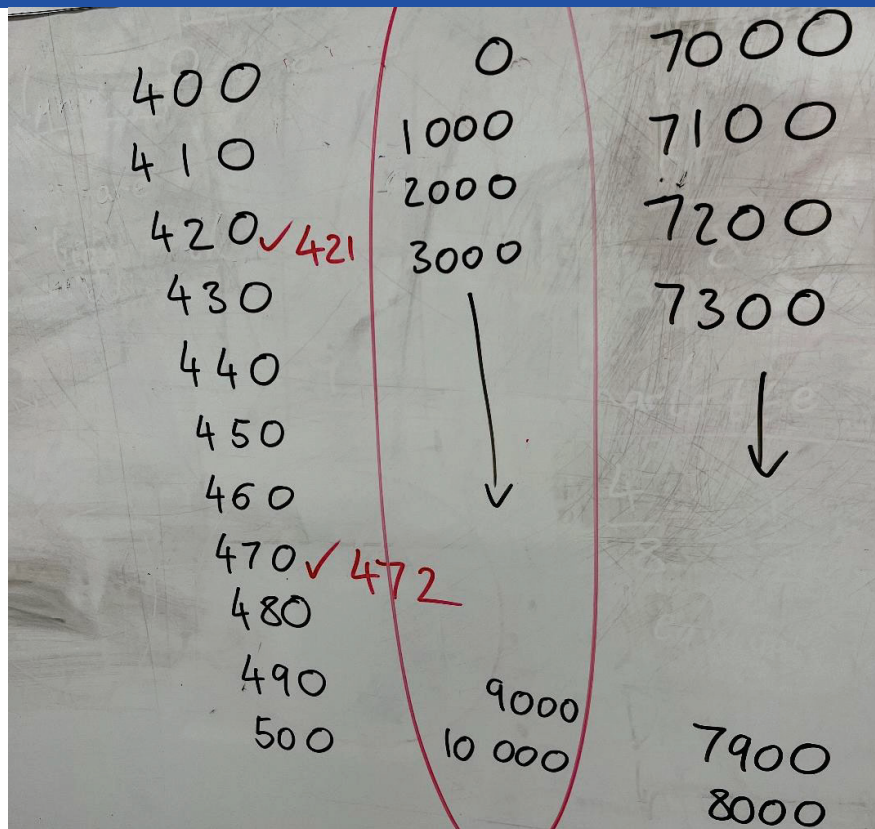 400
410
420✓421
430
440
450
460
470✓472
480
490
500
0
1000
2000
3000
9000
10 000
7000
7100
7200
7300
7900
8000